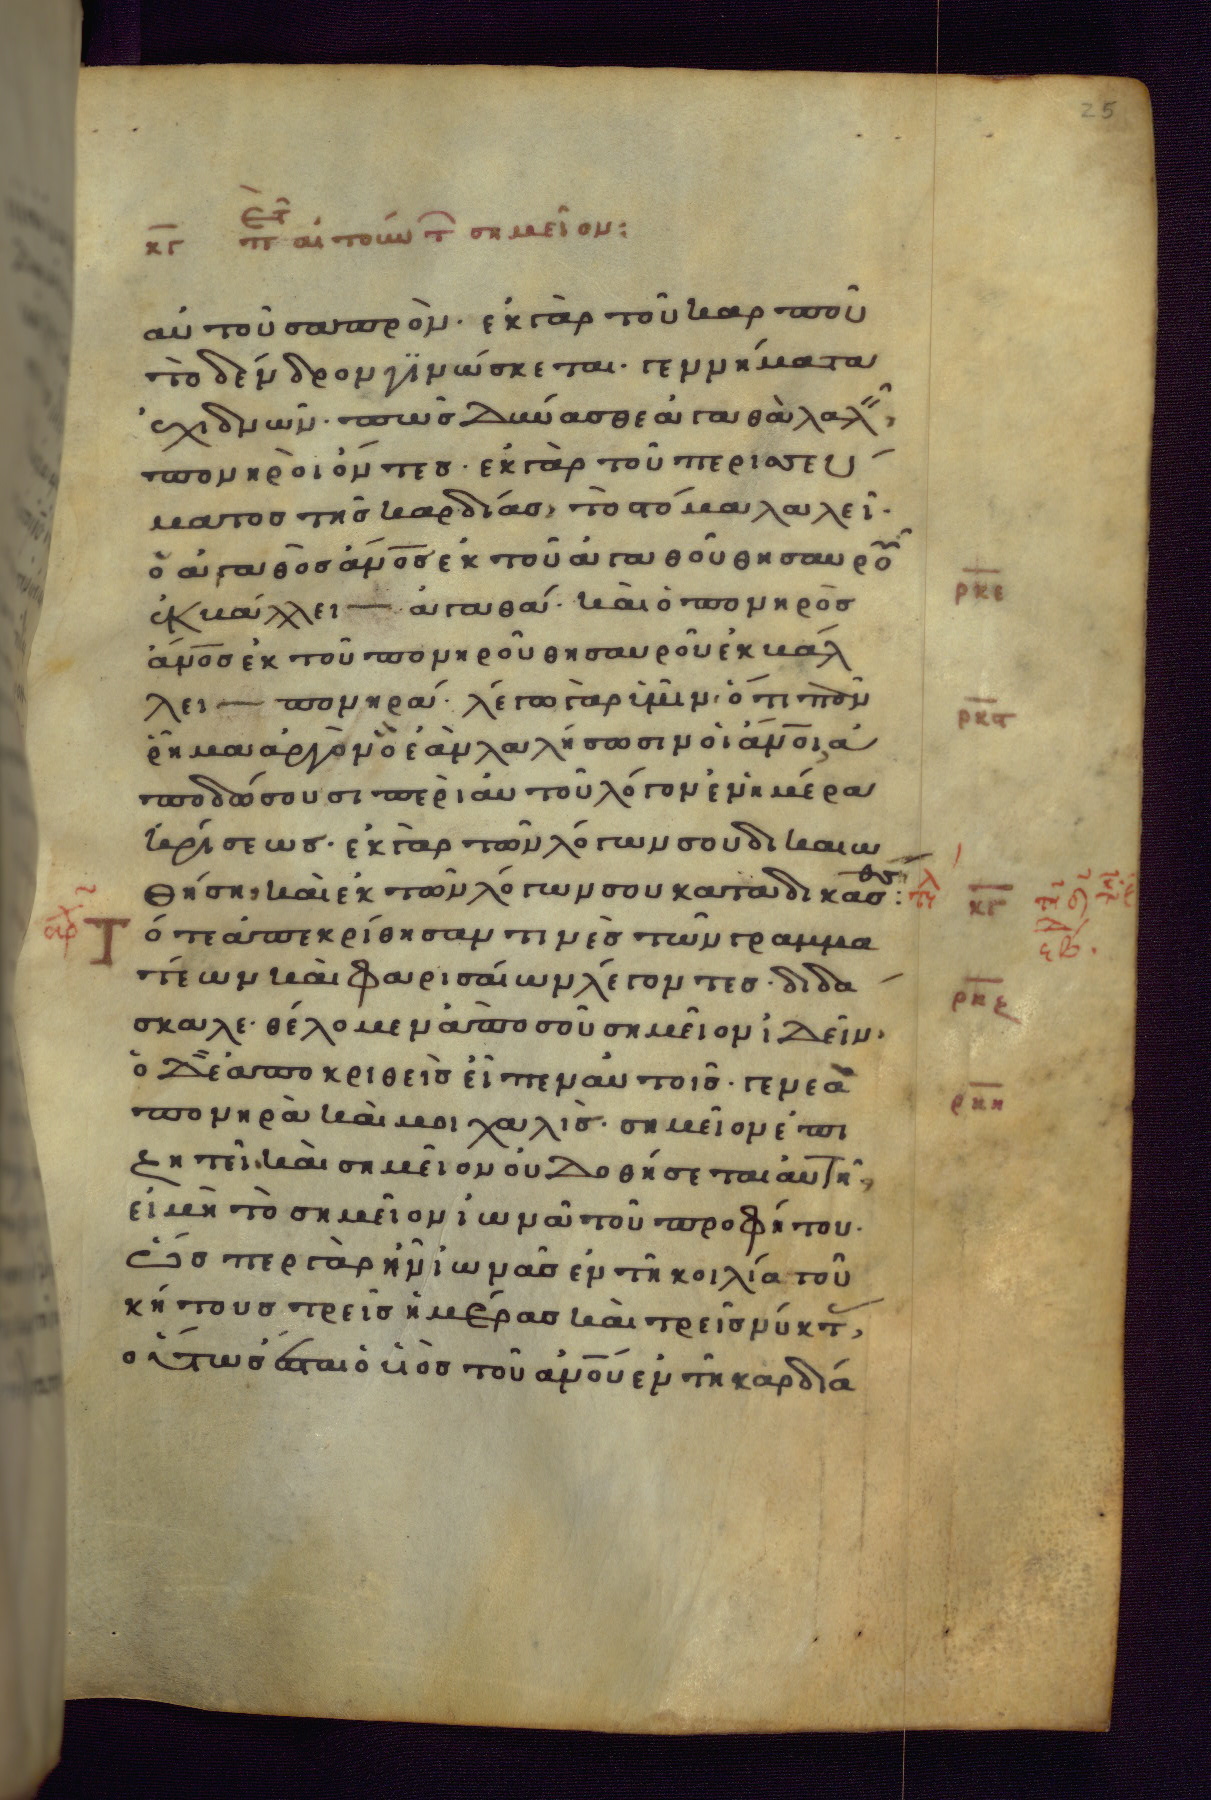 25
κγ περὶ τῶν αἰτούντων σημεῖον:
αὐτοῦ σαπρὸν· ἐκ γὰρ τοῦ καρποῦ
τὸ δένδρον γινώσκεται· γεννήματα
ἐχιδνῶν· πῶς δύνασθε ἀγαθὰ λαλεῖν,
πονηροὶ ὄντες· ἐκ γὰρ τοῦ περισσεύ
ματος τῆς καρδίας, τὸ στόμα λαλεῖ·
ὁ ἀγαθὸς ἄν̅ο̅ς̅ ἐκ τοῦ ἀγαθοῦ θησαυροῦ
ἐκβάλλει — ἀγαθά· καὶ ὁ πονηρὸς
ἄν̅ο̅ς̅ ἐκ τοῦ πονηροῦ θησαυροῦ ἐκβάλ
λει — πονηρά· λέγω γὰρ ὑμῖν, ὅτι πᾶν
ῥῆμα ἀργὸν ὃ ἐὰν λαλήσωσιν οἱ ἄν̅ο̅ι̅ ἀ
ποδώσουσι περὶ αὐτοῦ λόγον ἐν ἡμέρα
κρίσεως· ἐκ γὰρ τῶν λόγων σου δικαιω
θήση, καὶ ἐκ τῶν λόγων σου καταδικασθήση:
Τότε ἀπεκρίθησαν τινὲς τῶν γραμμα
τέων καὶ φαρισαίων λέγοντες· διδά
σκαλε· θέλομεν ἀπο σοῦ σημεῖον ἰδεῖν,
ὁ δὲ ἀποκριθεὶς εἶπεν αὐτοῖς· γενεὰ
πονηρὰ καὶ μοιχαλὶς· σημεῖον ἐπι
ζητεῖ· καὶ σημεῖον οὐ δοθήσεται αὐτῆ,
εἰ μὴ τὸ σημεῖον ἰωνᾶ τοῦ προφήτου·
ὥσπερ γὰρ ἦν ἰωνᾶς ἐν τῆ κοιλία τοῦ
κήτους τρεῖς ἡμέρας καὶ τρεῖς νύκτας,
οὕτως ἔσται ὁ υἱὸς τοῦ ἀν̅ο̅υ̅ ἐν τῆ καρδία
ρκε
ρκϛ
τέλος
κγ
ἀρχ
ρκζ
ρκη